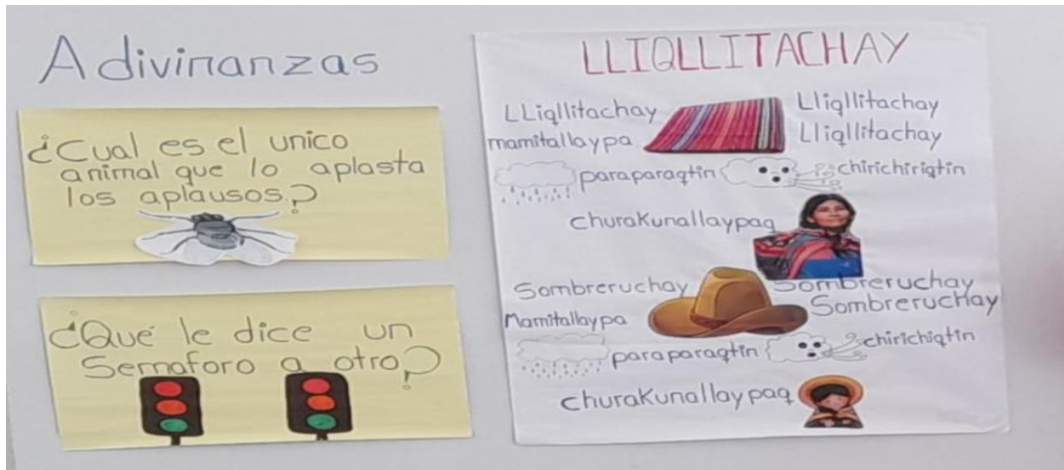 Adivinanzas
¿Cual es el unico
animal que lo aplasta
los aplausos?
¿Qué le dice un
Semaforo a otro?
LLIQLLITACHAY
LLiqllitachay Lliqllitachay
mamitallaypa Lliqllitachay
paraparaqtin chirichiriqtin
churakunallaypaq
Sombreruchay Sombreruchay
Mamitallaypa Sombreruchay
paraparaqtin chirichiqtin
churakunallaypaq